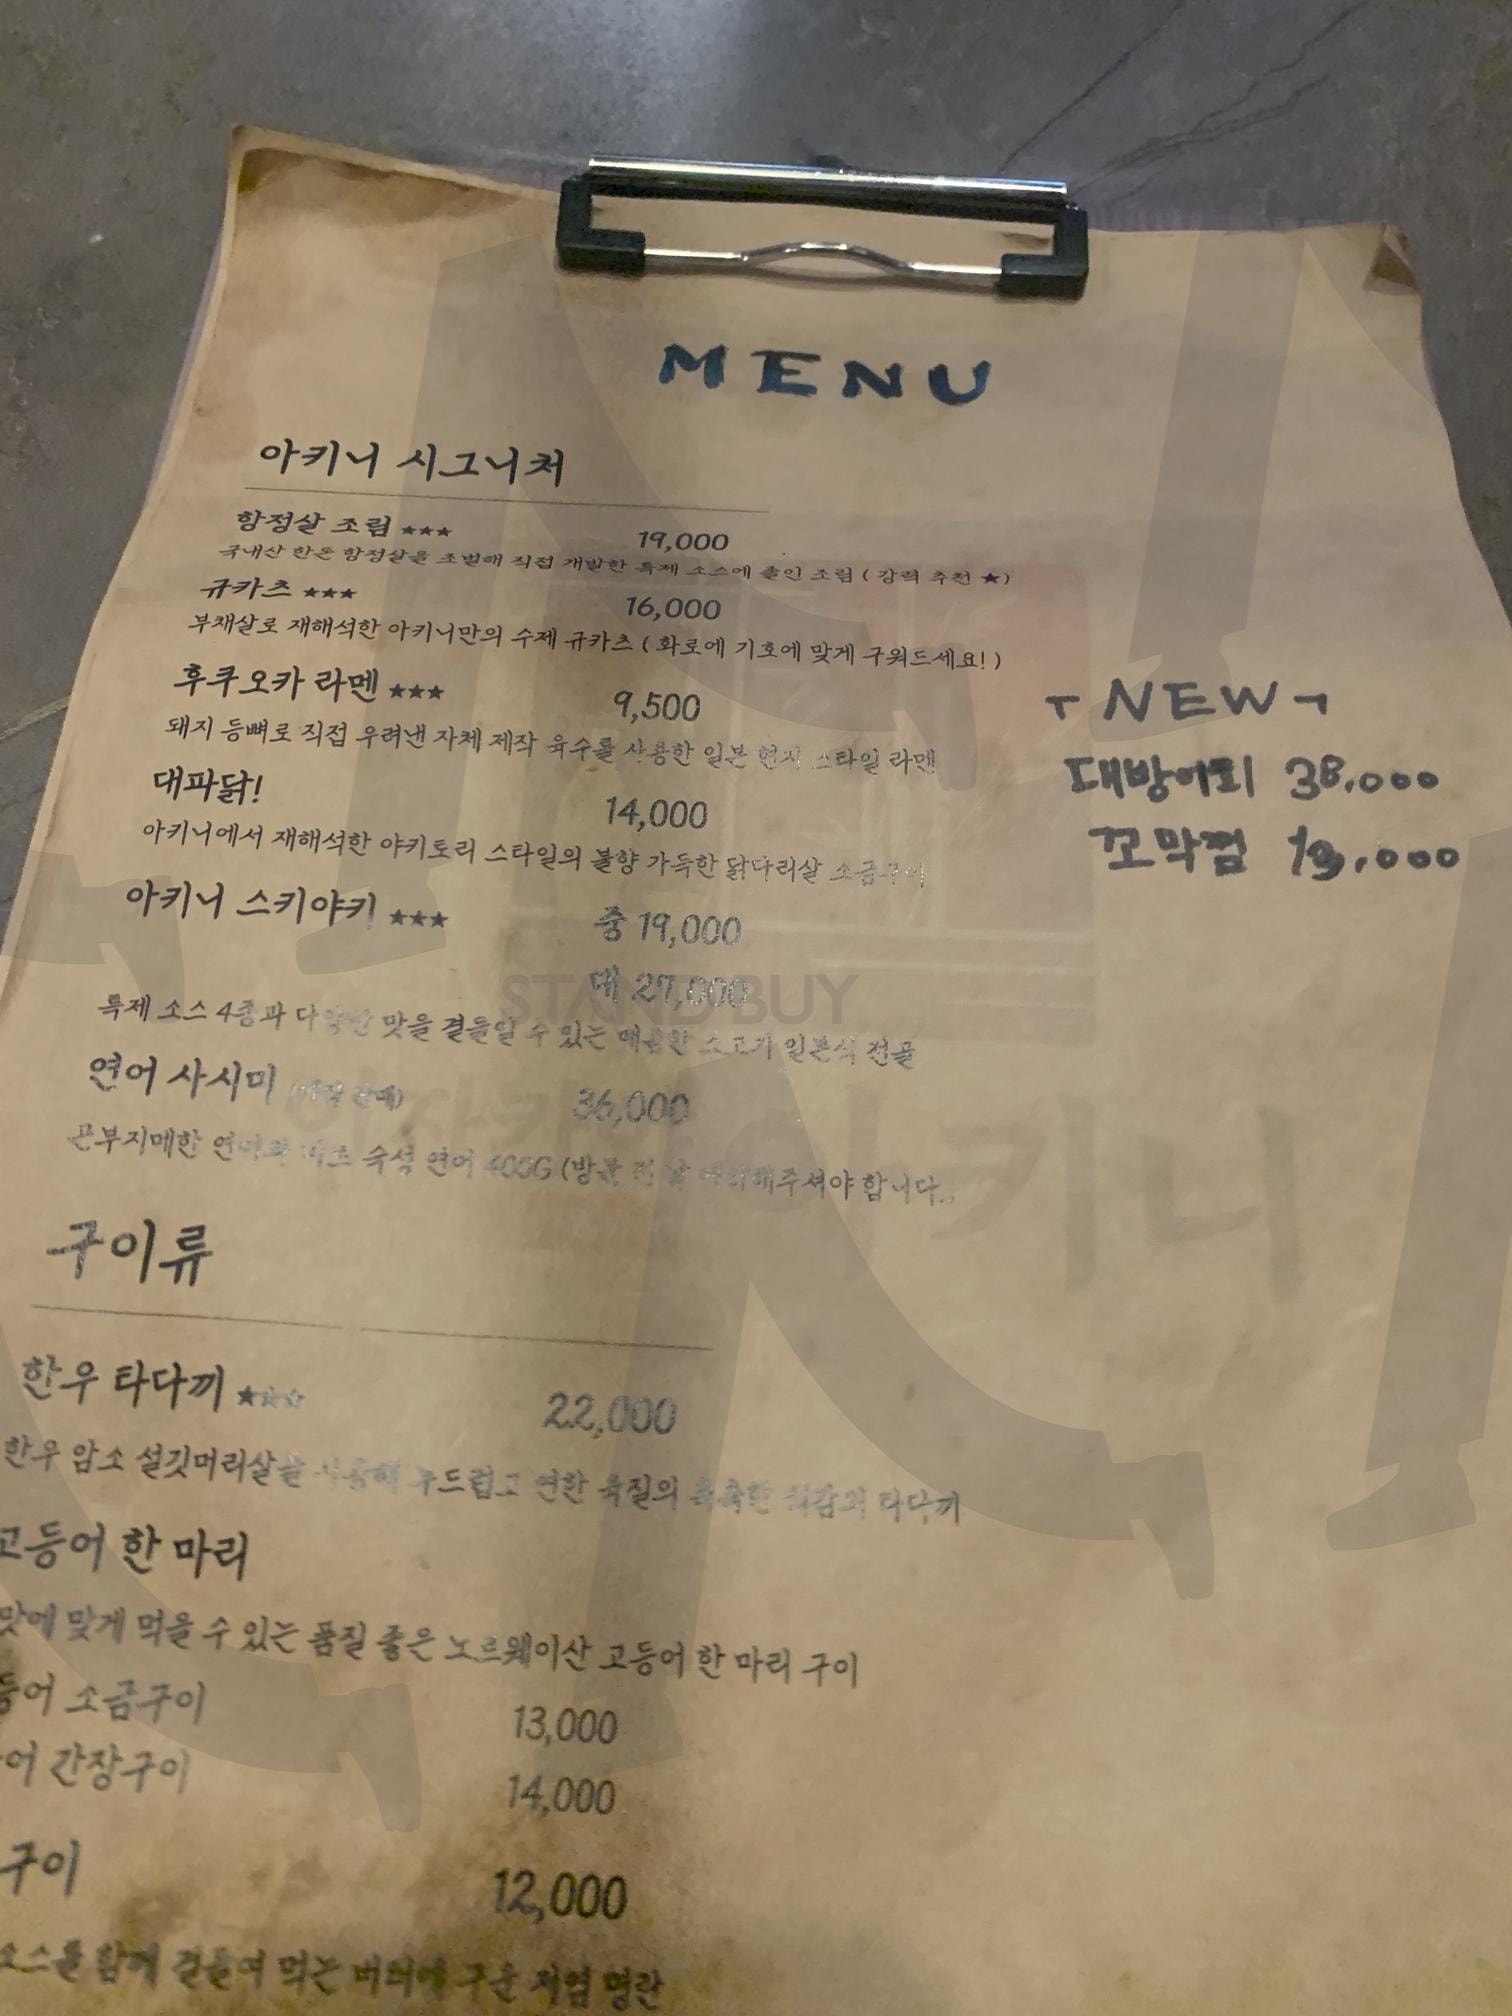 MENU
아키니 시그니처
항정살 조림 ★★★ 19,000
국내산 한돈 항정살을 초벌해 직접 개발한 특제 소스에 졸인 조림 ( 강력 추천 ★ )
규카츠 ★★★ 16,000
부채살로 재해석한 아키니만의 수제 규카츠 ( 화로에 기호에 맞게 구워드세요! )
후쿠오카 라멘 ★★★ 9,500
돼지 등뼈로 직접 우려낸 자체 제작 육수를 사용한 일본 현지 스타일 라멘
대파닭! 14,000
아키니에서 재해석한 야키토리 스타일의 불향 가득한 닭다리살 소금구이
아키니 스키야키 ★★★ 중 19,000
대 27,000
특제 소스 4종과 다양한 맛을 곁들일 수 있는 매콤한 소고기 일본식 전골
연어 사시미 36,000
곤부지메한 연어와 숙성 연어 400G (방문 전 날 예약해주셔야 합니다.
구이류
한우 타다끼 ★★★ 22,000
한우 암소 설깃머리살을 사용해 부드럽고 연한 육질의 촉촉한 식감의 타다끼
고등어 한 마리
맛에 맞게 먹을 수 있는 품질 좋은 노르웨이산 고등어 한 마리 구이
등어 소금구이 13,000
어 간장구이 14,000
구이 12,000
소스를 함께 곁들여 먹는 버터에 구운 저염 명란
NEW
대방어회 38,000
꼬막찜 19,000
STAND BUY
아키니